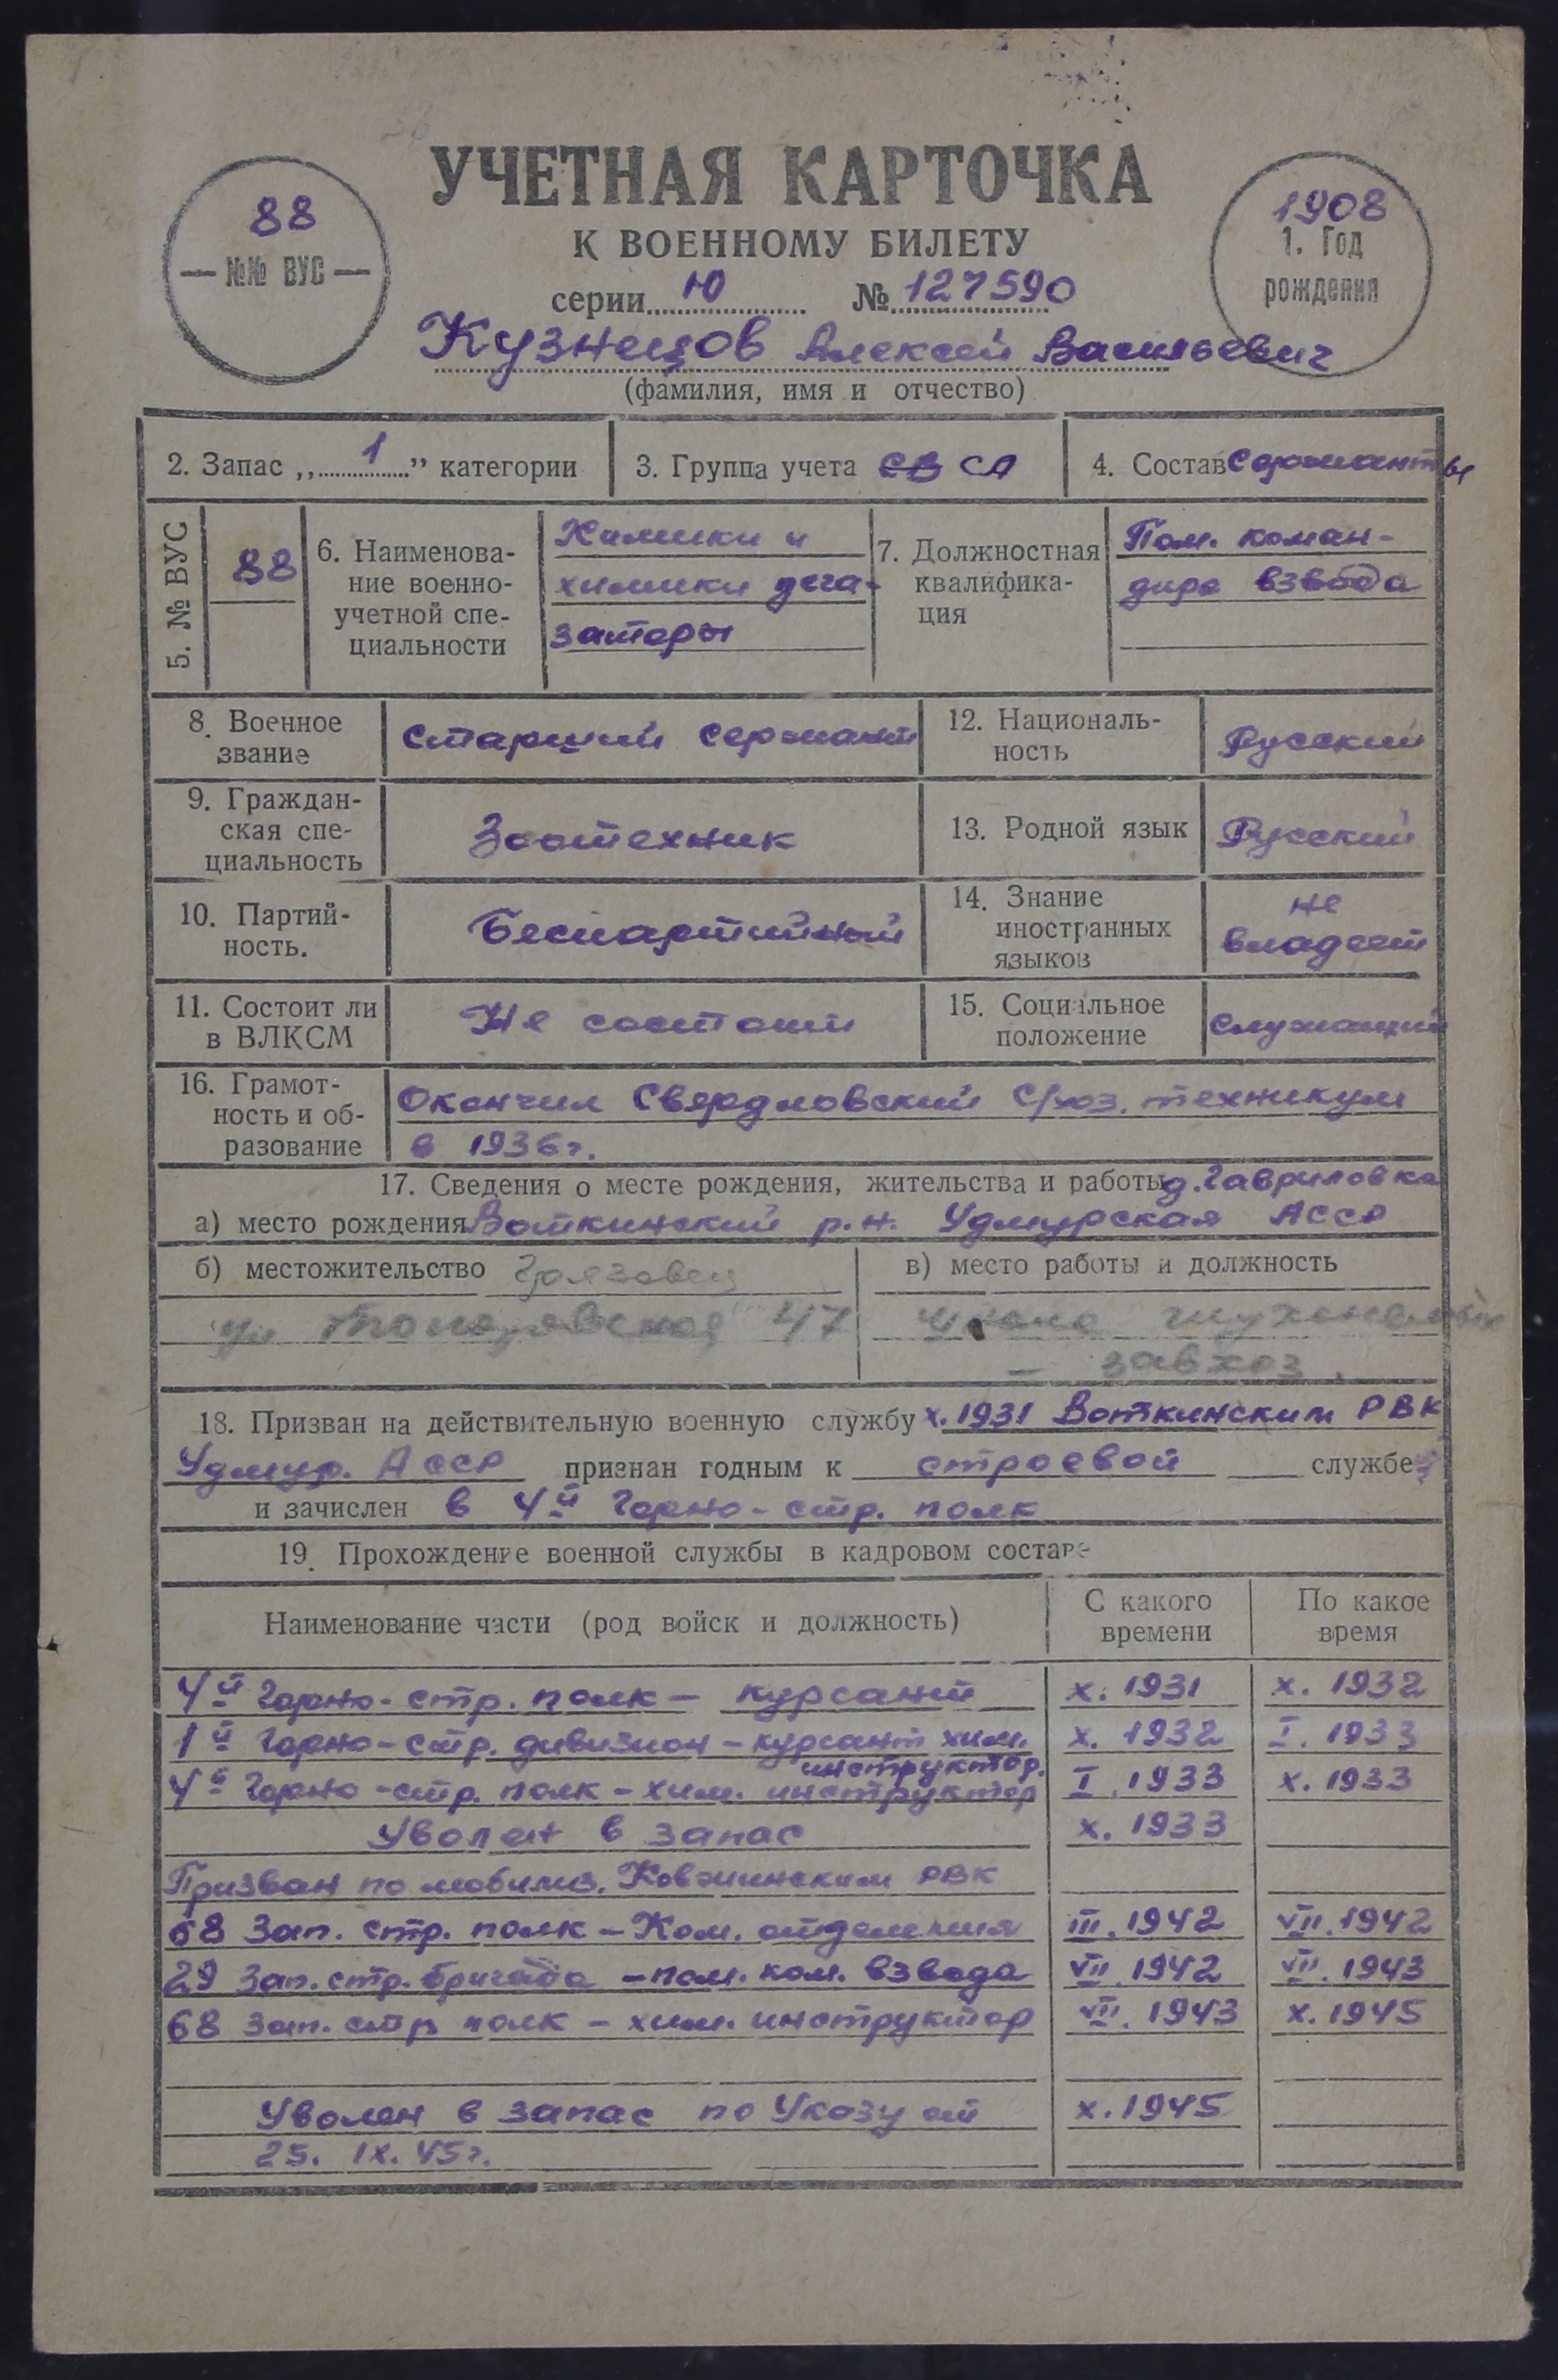 УЧЕТНАЯ КАРТОЧКА
К ВОЕННОМУ БИЛЕТУ
88
— №№ ВУС —
1908
1. Год
рождения
серии Ю № 127590
Кузнецов Алексей Васильевич
(фамилия, имя и отчество)
2. Запас „1” категории
3. Группа учета СВ СА
4. Состав Сержанты
5. № ВУС
88
6. Наименова-
ние военно-
учетной спе-
циальности
Химики и
химики дега-
заторы
7. Должностная
квалифика-
ция
Пом. коман-
дира взвода
8. Военное
звание
Старший сержант
12. Националь-
ность
Русский
9. Граждан-
ская спе-
циальность
Зоотехник
13. Родной язык
Русский
10. Партий-
ность.
Беспартийный
14. Знание
иностранных
языков
не
владеет
11. Состоит ли
в ВЛКСМ
Не состоит
15. Социальное
положение
служащий
16. Грамот-
ность и об-
разование
Окончил Свердловский с/хоз. техникум
в 1936г.
17. Сведения о месте рождения, жительства и работы д. Гавриловка
а) место рождения Воткинский р.н. Удмурская АССР
б) местожительство Грязовец
ул 47
в) место работы и должность
школа глухонемых
— завхоз.
18. Призван на действительную военную службу х. 1931 Воткинским РВК
Удмур. АССР признан годным к строевой службе
и зачислен в 4й Горно-стр. полк
19. Прохождение военной службы в кадровом составе
Наименование части (род войск и должность)
С какого
времени
По какое
время
4й Горно-стр. полк — курсант х. 1931 х. 1932
1й Горно-стр. дивизион — курсант хим. х. 1932 I. 1933
инструктор.
4й Горно-стр. полк — хим. инструктор I. 1933 х. 1933
Уволен в запас х. 1933
Призван по мобилиз. Ковжинским РВК
68 Зап. стр. полк — Ком. отделения III. 1942 VII. 1942
29 Зап. стр. бригада — пом. ком. взвода VII. 1942 VII. 1943
68 Зап. стр полк — хим. инструктор VII. 1943 х. 1945
Уволен в запас по Указу от х. 1945
25. IX. 45г.